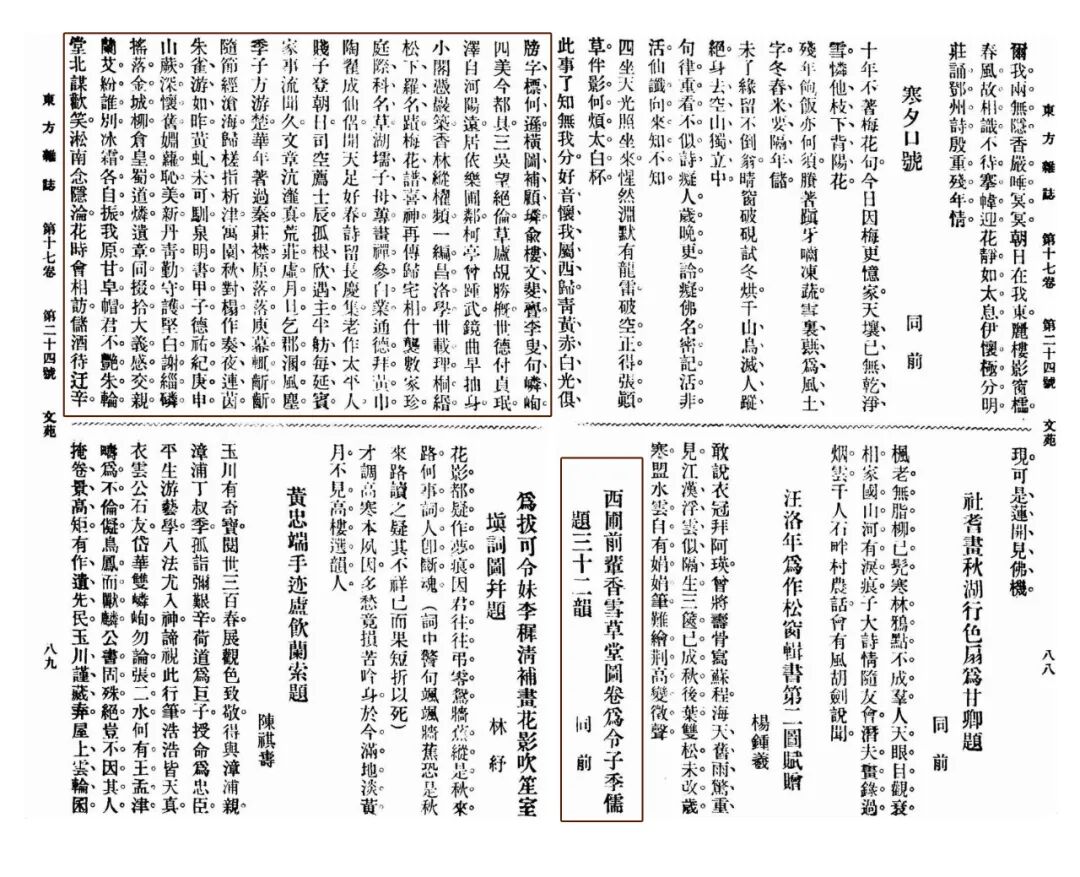 東方雜誌 第十七卷 第二十四號 文苑 八八
爾我兩無隱香嚴唾冥冥朝日在我東麗樓影窗櫺。
春風故相識不待搴幃迎花靜如太息伊懷極分明。
莊誦鄧州詩殷重殘年情。
寒夕口號 同前
十年不不著梅花句今日因梅更憶家天壤已無乾淨
雪憐他枝下背陽花。
殘年飽飯亦何須賸著齇牙嚼凍蔬雪裏為風土
字冬舂米要隔年儲。
未了緣留不倒翁晴窗破硯試冬烘千山鳥滅人蹤
絕身去空山獨立中。
句律重看不似詩癡人歲晚更論癡佛名密記活非
活仙讖向來知不知。
四坐天光照坐來惺然淵默有龍雷破空正得張顛
草伴影何煩太白杯。
此事了知無我分好音懷我屬西歸青黃赤白光俱
現可是蓮開見佛機。
社耆畫秋湖行色扇爲甘卿題 同前
楓老無脂柳已髠寒林鴉點不成羣人天眼目觀袞
相家國山河有淚痕子大詩情隨友會潛夫畫錄過
烟雲千人石畔村農話會有風胡劍說聞。
汪洛年爲作松窗輯書第二圖賦贈 楊鍾羲
敢說衣冠拜阿瑛曾將壽骨寫蘇程海天舊雨驚重
見江漢浮雲似隔生三篋已成秋後葉雙松未改歲
寒盟水雲自有娟娟筆難繪荆高變徵聲。
西圃前輩香雪草堂圖卷爲令子季儒
題三十二韻 同前
牓字標何遜橫圖補顧璘兪樓文斐亹李叟句嶙峋
四美今都具三吳望絕倫草廬覘勝槪世德付貞珉
澤白河陽遠居依樂圃鄰柯亭曾踵武鏡曲早抽身
小閣憑巖築香林縱櫂頻一編昌洛學卅載理桐緡
松下羅名蹟梅花譜喜神再傳歸宅相什襲數家珍
庭際科名草湖壖子母蓴畫禪參白業通德拜黃巾
陶翟成仙侶閒天足好春詩留長慶集老作太平人
賤子登朝日司空薦士辰孤根欣遇主半舫每延賓
家事流聞久文章沆瀣眞荒莊虛月旦乞郡溷風塵
季子方游楚華年著過秦莊襟原落落庾幕輒齗齗
隨節經滄海歸槎指析津寓園秋對榻作奏夜連茵
朱雀游如昨黃虬未可馴泉明書甲子德祐紀庚申
山蕨深懷舊媚蘿恥美新丹靑勤守護堅白謝緇磷
搖落金城柳倉皇蜀道燐遺章同掇拾大義感交親
蘭艾紛誰別冰霜各自振我原甘皁帽君不艷朱輪
堂北謀歡笑淞南念隱淪花時會相訪儲酒待迂辛
東方雜誌 第十七卷 第二十四號 文苑 八九
爲拔可令妹李穉淸補畫花影吹笙室
塡詞圖幷題 林紓
花影都疑作夢痕因君往往弔零鴛牆蕉縱是秋來
路何事詞人卽斷魂（詞中警句颯颯牆蕉恐是秋
來路讀之疑其不祥已而果短折以死）
才調高寒本夙因多愁竟損苦吟身於今滿地淡黃
月不見高樓選韻人
黃忠端手迹盧飮蘭索題 陳祺壽
玉川有奇寶閱世三百春展觀色致敬得與漳浦親
漳浦丁叔季孤詣彌艱辛荷道爲巨子授命爲忠臣
平生游藝學八法尤入神諦視此行筆浩浩皆天眞
衣雲公石友岱華雙嶙峋勿論張二水何有王孟津
疇爲不倫儗鳥鳳而獸麟公書固殊絕豈不因其人
掩卷景高矩有作遺先民玉川謹藏弆屋上雲輪囷